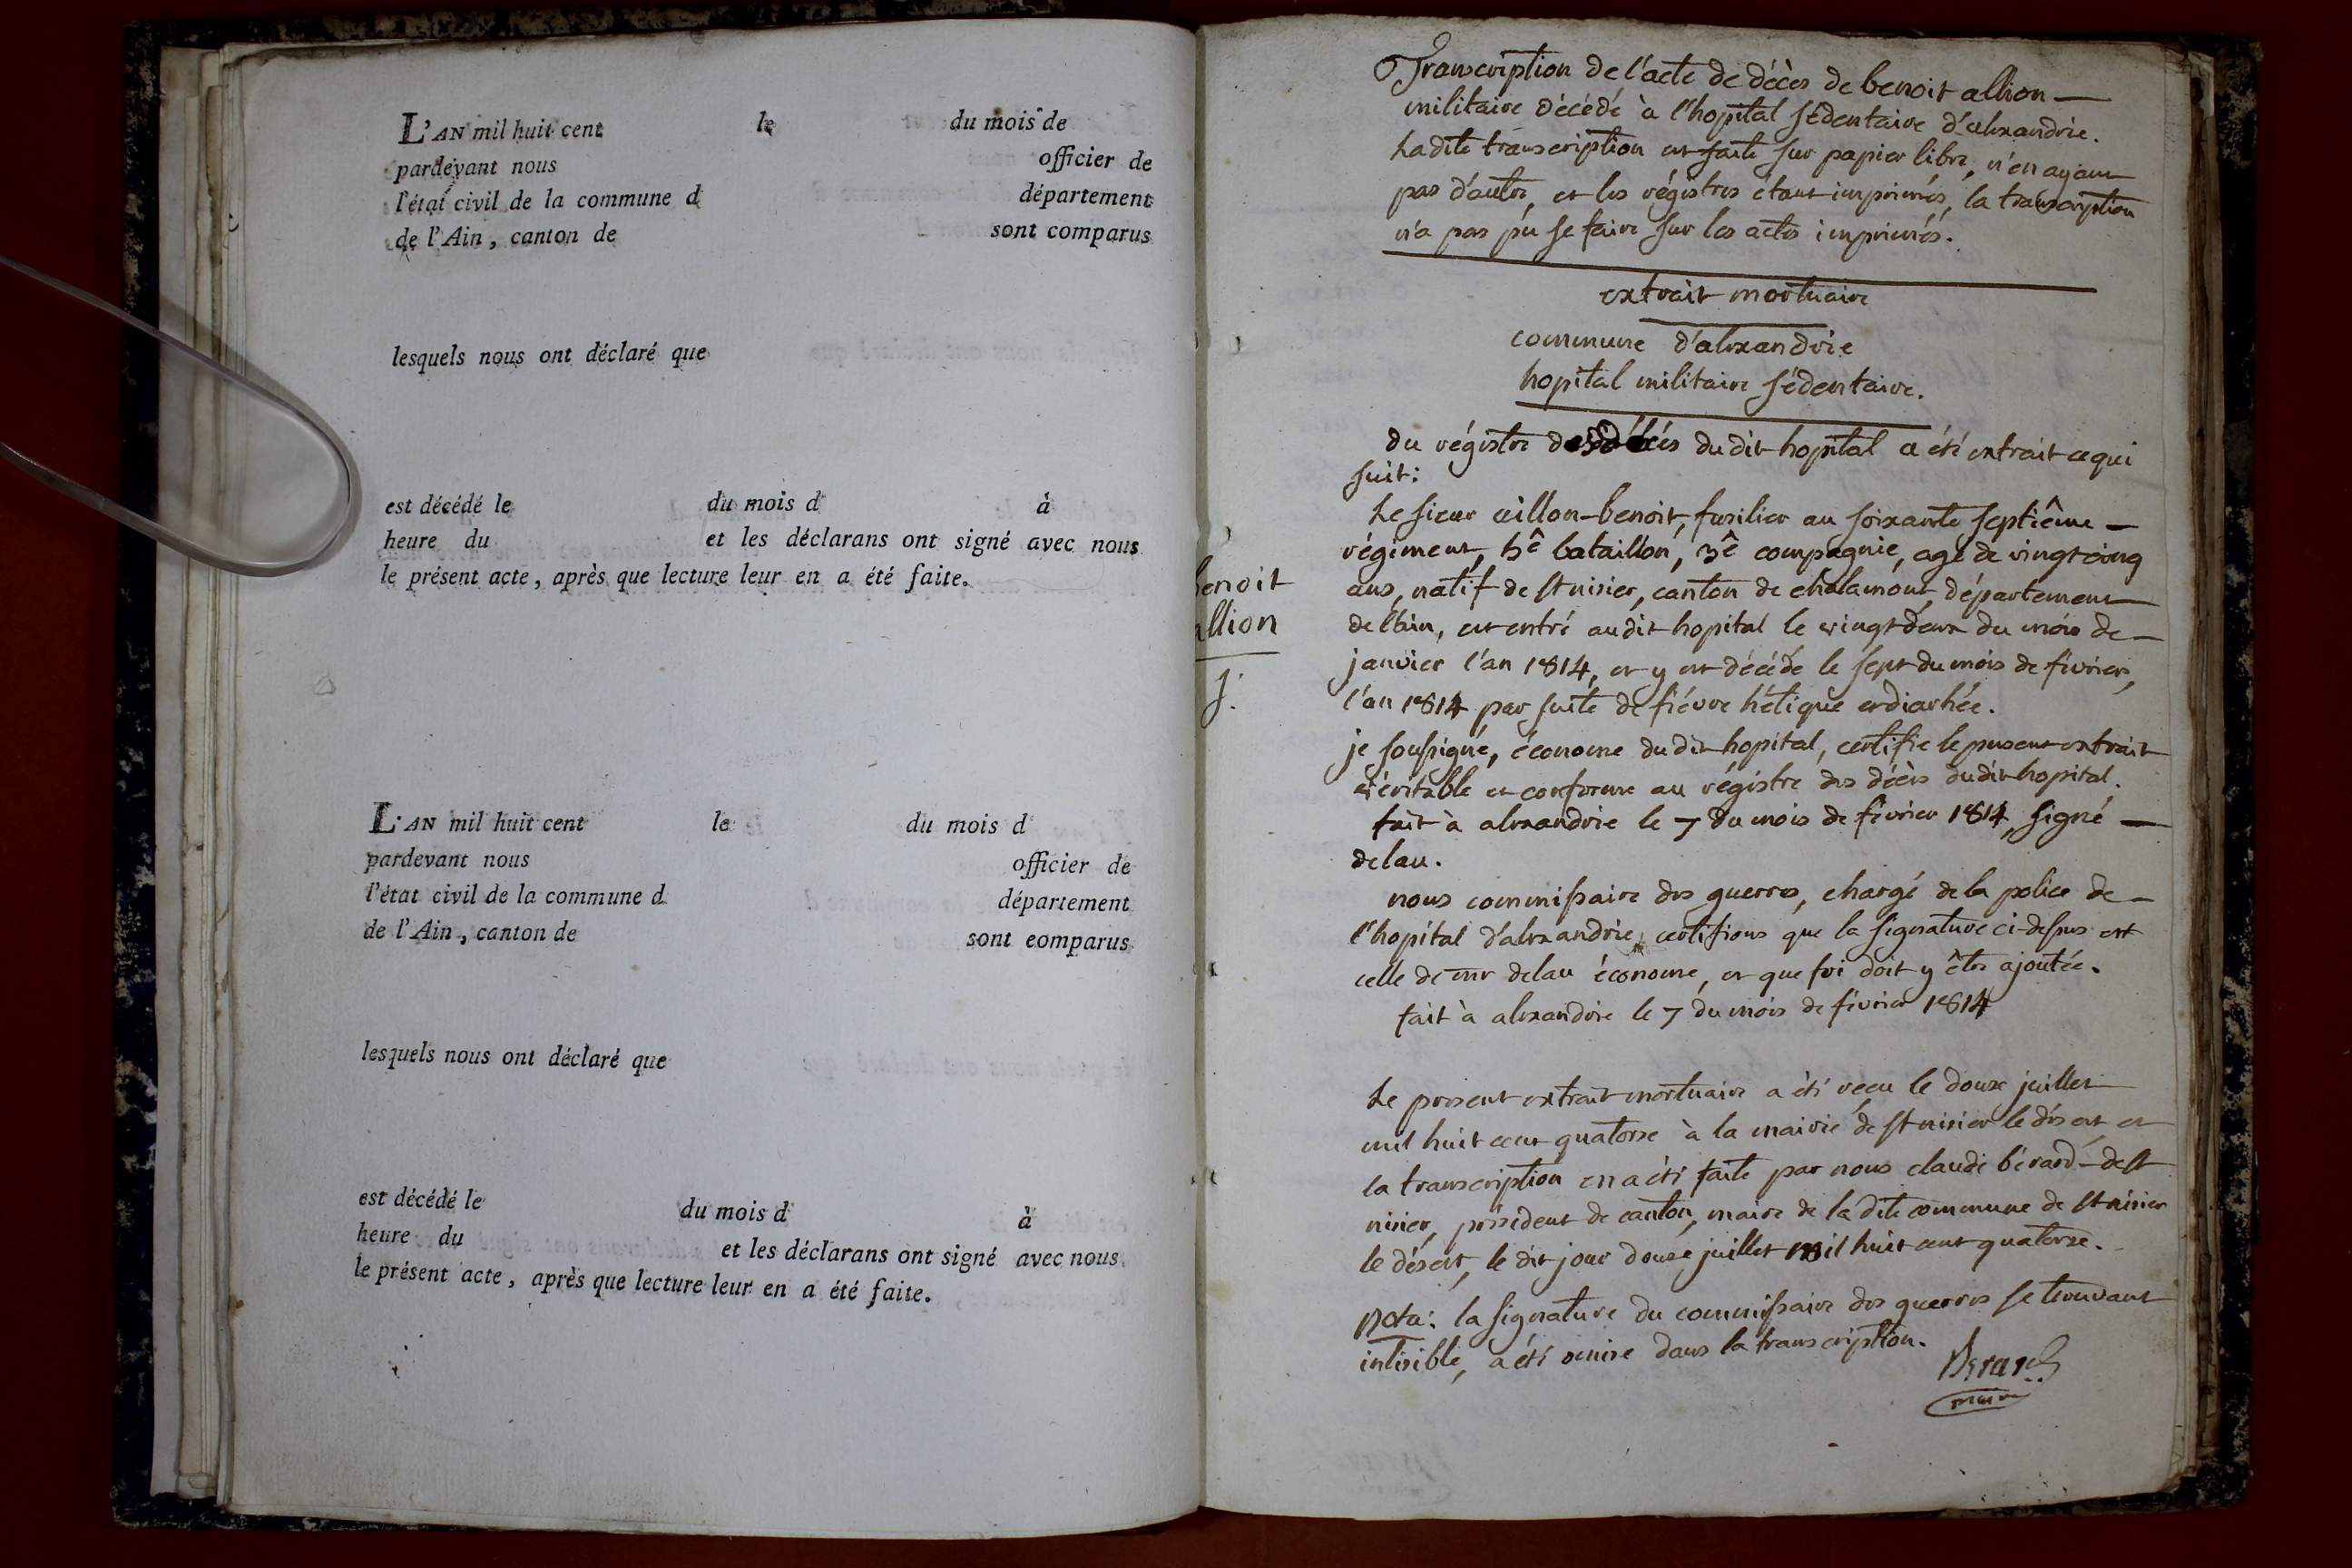 L'AN mil huit cent le du mois de
pardevant nous officier de
l'état civil de la commune d département
de l'Ain, canton de sont comparus
lesquels nous ont déclaré que
est décédé le du mois d à
heure du et les déclarans ont signé avec nous
le présent acte, après que lecture leur en a été faite.
L'AN mil huit cent le du mois d
pardevant nous officier de
l'état civil de la commune d département
de l'Ain, canton de sont eomparus
lesquels nous ont déclaré que
est décédé le du mois d à
heure du et les déclarans ont signé avec nous
le présent acte, après que lecture leur en a été faite.
benoit
allion
Transcription de l'acte de décès de benoit allion
militaire décédé à l'hopital sédentaire d'alexandrie.
Ladite transcription est faite sur papier libre, n'en ayant
pas d'autre, et les régistres étant imprimés, la transcription
n'a pas pû se faire sur les actes imprimés.
extrait mortuaire
commune d'alexandrie
hopital militaire sédentaire.
du régistre des décès du dit hopital a été extrait ce qui
suit:
Le sieur aillon benoit, fusilier au soixante septième
régiment, 5e bataillon, 3e compagnie, agé de vingt cinq
ans, natif de st nisier, canton de chalamont, département
de l'ain, est entré audit hopital le vingt deux du mois de
janvier l'an 1814, et y est décédé le sept du mois de février,
l'an 1814 par suite de fiévre hétique et diarhée.
je soussigné, économe du dit hopital, certifie le present extrait
véritable et conforme au régistre des décès dudit hopital.
fait à alexandrie le 7 du mois de février 1814, signé
delau.
nous commissaire des guerres, chargé de la police de
l'hopital d'alexandrie, certifions que la signature ci-dessus est
celle de mr delau économe, et que foi doit y être ajoutée.
fait à alexandrie le 7 du mois de février 1814
Le present extrait mortuaire a été recu le douze juillet
mil huit cent quatorze à la mairie de st nisier le désert, et
la transcription en a été faite par nous claude bérard de st
nisier, président de canton, maire de la dite commune de st nisier
le désert, le dit jour douze juillet mil huit cent quatorze.
nota: la signature du commissaire des guerres se trouvant
inlisible, a été omise dans la transcription.
Bérard
maire